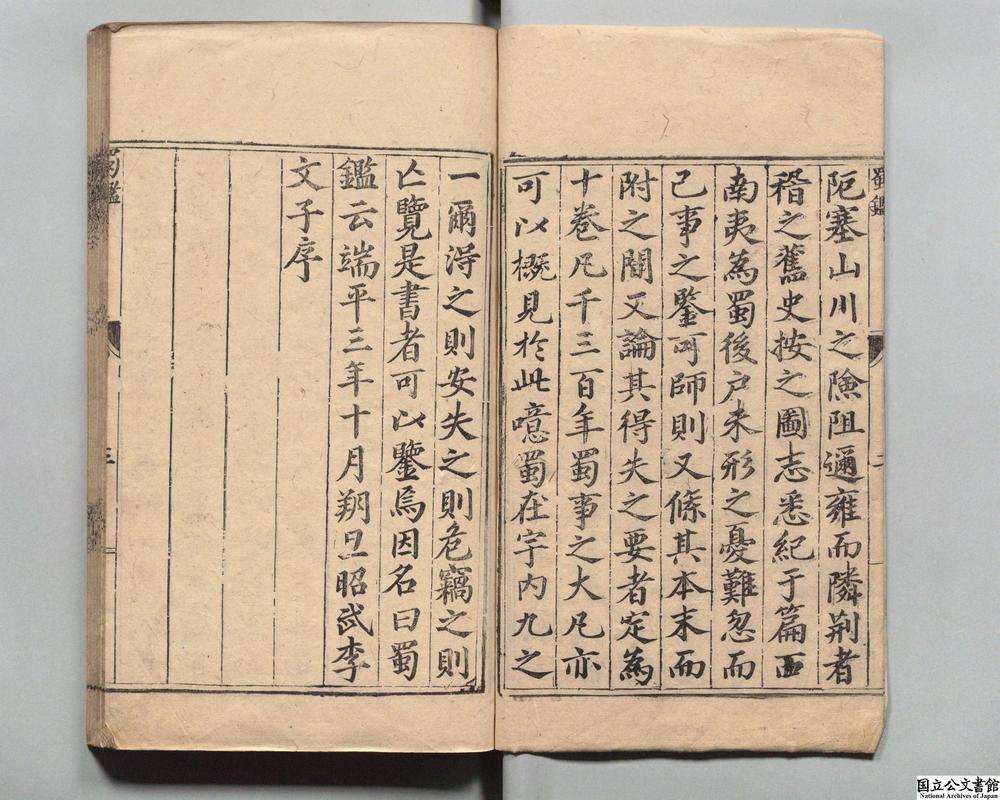 阨塞山川之險阻邇雍而隣荆者
稽之舊史按之圖志悉紀于篇西
南夷為蜀後户未形之憂難忽而
已事之鑒可師則又條其本末而
附之間又論其得失之要者定為
十卷凡千三百年蜀事之大凡亦
可以概見於此噫蜀在宇内九之
一爾得之則安失之則危竊之則
亡覽是書者可以鑒焉因名曰蜀
鑑云端平三年十月朔旦昭武李
文子序
蜀鑑
二
蜀鑑
三
国立公文書館
National Archives of Japan